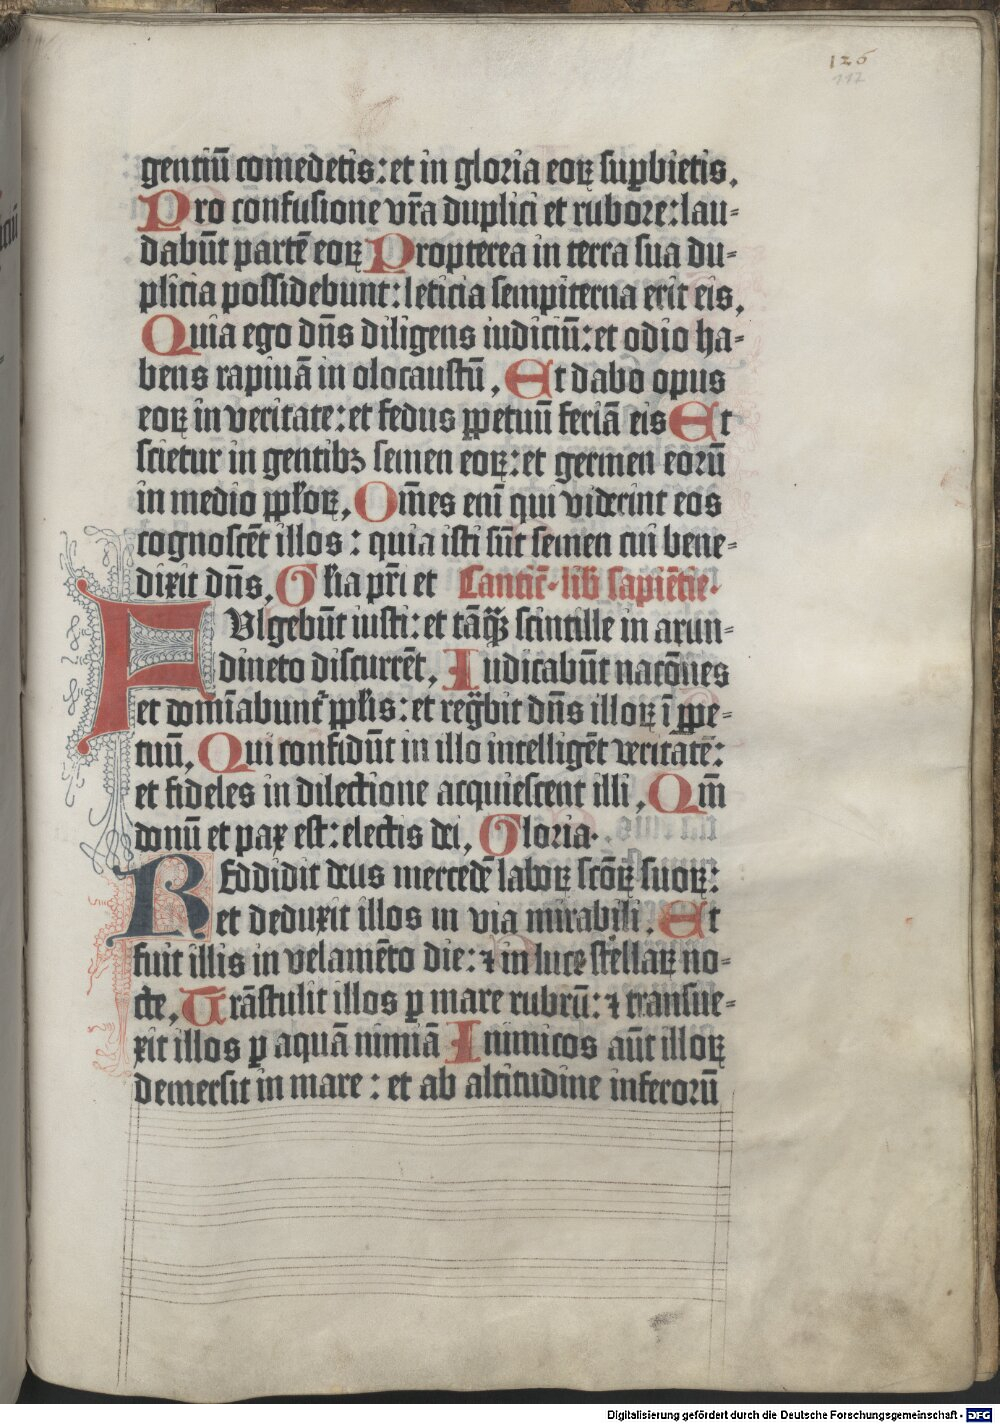 126
117
gentiū comedetis: et in gloria eoꝝ suꝑbietis.
Pro confusione vr̄a duplici et rubore: lau-
dabūt partē eoꝝ Propterea in terra sua du-
plicia possidebunt: leticia sempiterna erit eis,
Quia ego dn̄s diligens iudiciū: et odio ha-
bens rapinā in olocaustū, Et dabo opus
eoꝝ in veritate: et fedus ꝑpetuū feriā eis Et
scietur in gentibꝫ semen eoꝝ: et germen eorū
in medio ppl̓oꝝ, Om̄es enī qui viderint eos
cognoscēt illos: quia isti sūt semen cui bene-
dixit dn̄s, Gl̓ia pr̄i et Cantic̄· lib̄ sapiētie·
FUlgebūt iusti: et tāqȝ scintille in arun-
dineto discurrēt, Iudicabūt nacōnes
et domīabunt᷑ ppl̓is: et reg̅bit dn̄s illoꝝ ī ꝑpe-
tuū, Qui confidūt in illo intelligēt veritatē:
et fideles in dilectione acquiescent illi, Qm̄
donū et pax est: electis dei, Gloria·
REddidit deus mercedē laboꝝ scōꝝ suoꝝ:
et deduxit illos in via mirabili, Et
fuit illis in velamēto die: ⁊ in luce stellaꝝ no-
cte, Trāstulit illos ꝑ mare rubrū: ⁊ transue-
xit illos ꝑ aquā nimiā Inimicos aūt illoꝝ
demersit in mare: et ab altitudine inferorū
Digitalisierung gefördert durch die Deutsche Forschungsgemeinschaft - DFG